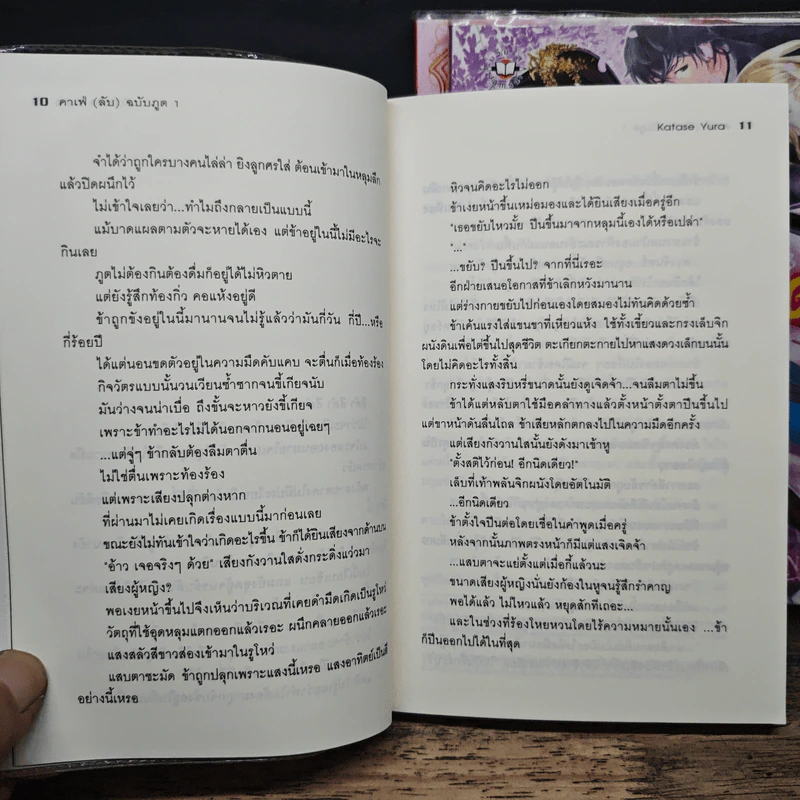 10 คาเฟ่ (ลับ) ฉบับภูต 1
จำได้ว่าถูกใครบางคนไล่ล่า ยิงลูกศรใส่ ต้อนเข้ามาในหลุมลึก
แล้วปิดผนึกไว้
ไม่เข้าใจเลยว่า...ทำไมถึงกลายเป็นแบบนี้
แม้บาดแผลตามตัวจะหายได้เอง แต่ข้าอยู่ในนี้ไม่มีอะไรจะ
กินเลย
ภูตไม่ต้องกินต้องดื่มก็อยู่ได้ไม่หิวตาย
แต่ยังรู้สึกท้องกิ่ว คอแห้งอยู่ดี
ข้าถูกขังอยู่ในนี้มานานจนไม่รู้แล้วว่ามันกี่วัน กี่ปี...หรือ
กี่ร้อยปี
ได้แต่นอนขดตัวอยู่ในความมืดคับแคบ จะตื่นก็เมื่อท้องร้อง
กิจวัตรแบบนั้นวนเวียนซ้ำซากจนขี้เกียจนับ
มันว่างจนน่าเบื่อ ถึงขั้นจะหาวยังขี้เกียจ
เพราะข้าทำอะไรไม่ได้นอกจากนอนอยู่เฉยๆ
...แต่จู่ๆ ข้ากลับต้องลืมตาตื่น
ไม่ใช่ตื่นเพราะท้องร้อง
แต่เพราะเสียงปลุกต่างหาก
ที่ผ่านมาไม่เคยเกิดเรื่องแบบนี้มาก่อนเลย
ขณะยังไม่ทันเข้าใจว่าเกิดอะไรขึ้น ข้าก็ได้ยินเสียงจากด้านบน
"อ้าว เจอจริงๆ ด้วย" เสียงกังวานใสดั่งกระดิ่งแว่วมา
เสียงผู้หญิง?
พอเงยหน้าขึ้นไปจึงเห็นว่าบริเวณที่เคยดำมืดเกิดเป็นรูโหว่
วัตถุที่ใช้อุดหลุมแตกออกแล้วเรอะ ผนึกคลายออกแล้วเรอะ
แสงสลัวสีขาวส่องเข้ามาในรูโหว่
แสบตาชะมัด ข้าถูกปลุกเพราะแสงนี้เหรอ แสงอาทิตย์เป็นสี
อย่างนี้เหรอ
Katase Yura 11
หิวจนคิดอะไรไม่ออก
ข้าเงยหน้าขึ้นเหม่อมองและได้ยินเสียงเมื่อครู่อีก
"เธอขยับไหวมั้ย ปีนขึ้นมาจากหลุมนี้เองได้หรือเปล่า"
"..."
...ขยับ? ปีนขึ้นไป? จากที่นี่เรอะ
อีกฝ่ายเสนอโอกาสที่ข้าเลิกหวังมานาน
แต่ร่างกายขยับไปก่อนเองโดยสมองไม่ทันคิดด้วยซ้ำ
ข้าเค้นแรงใส่แขนขาที่เหี่ยวแห้ง ใช้ทั้งเขี้ยวและกรงเล็บจิก
ผนังดินเพื่อไต่ขึ้นไปสุดชีวิต ตะเกียกตะกายไปหาแสงดวงเล็กบนนั้น
โดยไม่คิดอะไรทั้งสิ้น
กระทั่งแสงริบหรี่ขนาดนั้นยังดูเจิดจ้า...จนลืมตาไม่ขึ้น
ข้าได้แต่หลับตาใช้มือคลำทางแล้วตั้งหน้าตั้งตาปีนขึ้นไป
แต่ขาหน้าดันลื่นไถล ข้าเสียหลักตกลงไปในความมืดอีกครั้ง
แต่เสียงกังวานใสนั้นยังดังมาเข้าหู
"ตั้งสติไว้ก่อน! อีกนิดเดียว!"
เล็บที่เท้าพลันจิกผนังโดยอัตโนมัติ
...อีกนิดเดียว
ข้าตั้งใจปีนต่อโดยเชื่อในคำพูดเมื่อครู่
หลังจากนั้นภาพตรงหน้าก็มีแต่แสงเจิดจ้า
...แสบตาจะแย่ตั้งแต่เมื่อกี้แล้วนะ
ขนาดเสียงผู้หญิงนั่นยังก้องในหูจนรู้สึกรำคาญ
พอได้แล้ว ไม่ไหวแล้ว หยุดสักทีเถอะ...
และในช่วงที่ร้องโหยหวนโดยไร้ความหมายนั้นเอง ...ข้า
ก็ปีนออกไปได้ในที่สุด